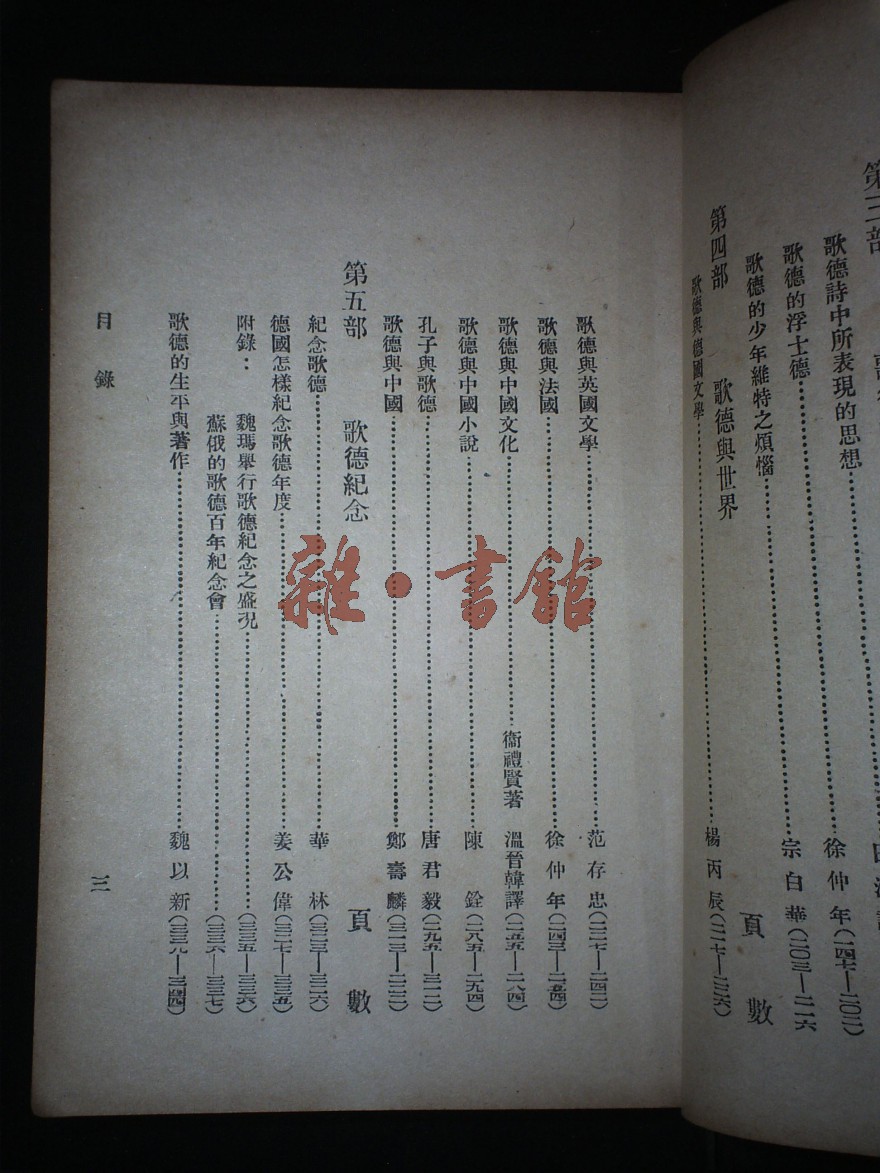 第三部
歌德詩中所表現的思想
歌德的浮士德……徐仲年(一四七—二〇二)
歌德的少年維特之煩惱……宗白華(二〇三—二一六
第四部 歌德與世界 頁數
歌德與德國文學……楊丙辰(二一七—二二六)
歌德與英國文學……范存忠(二二七—二四二)
歌德與法國……徐仲年(二四三—二五四)
歌德與中國文化……衞禮賢著 溫晉韓譯(二五五—二八四)
歌德與中國小說……陳銓(二八五—二九四)
孔子與歌德……唐君毅(二九五—三一二)
歌德與中國……鄭壽麟(三一三—三二二)
第五部 歌德紀念 頁數
紀念歌德……華林(三二三—三二六)
德國怎樣紀念歌德年度……姜公偉(三二七—三三五)
附錄：魏瑪舉行歌德紀念之盛況……(三三五—三三六)
蘇俄的歌德百年紀念會……(三三六—三三七)
歌德的生平與著作……魏以新(三三九—三四四)
目錄 三
雜·書館